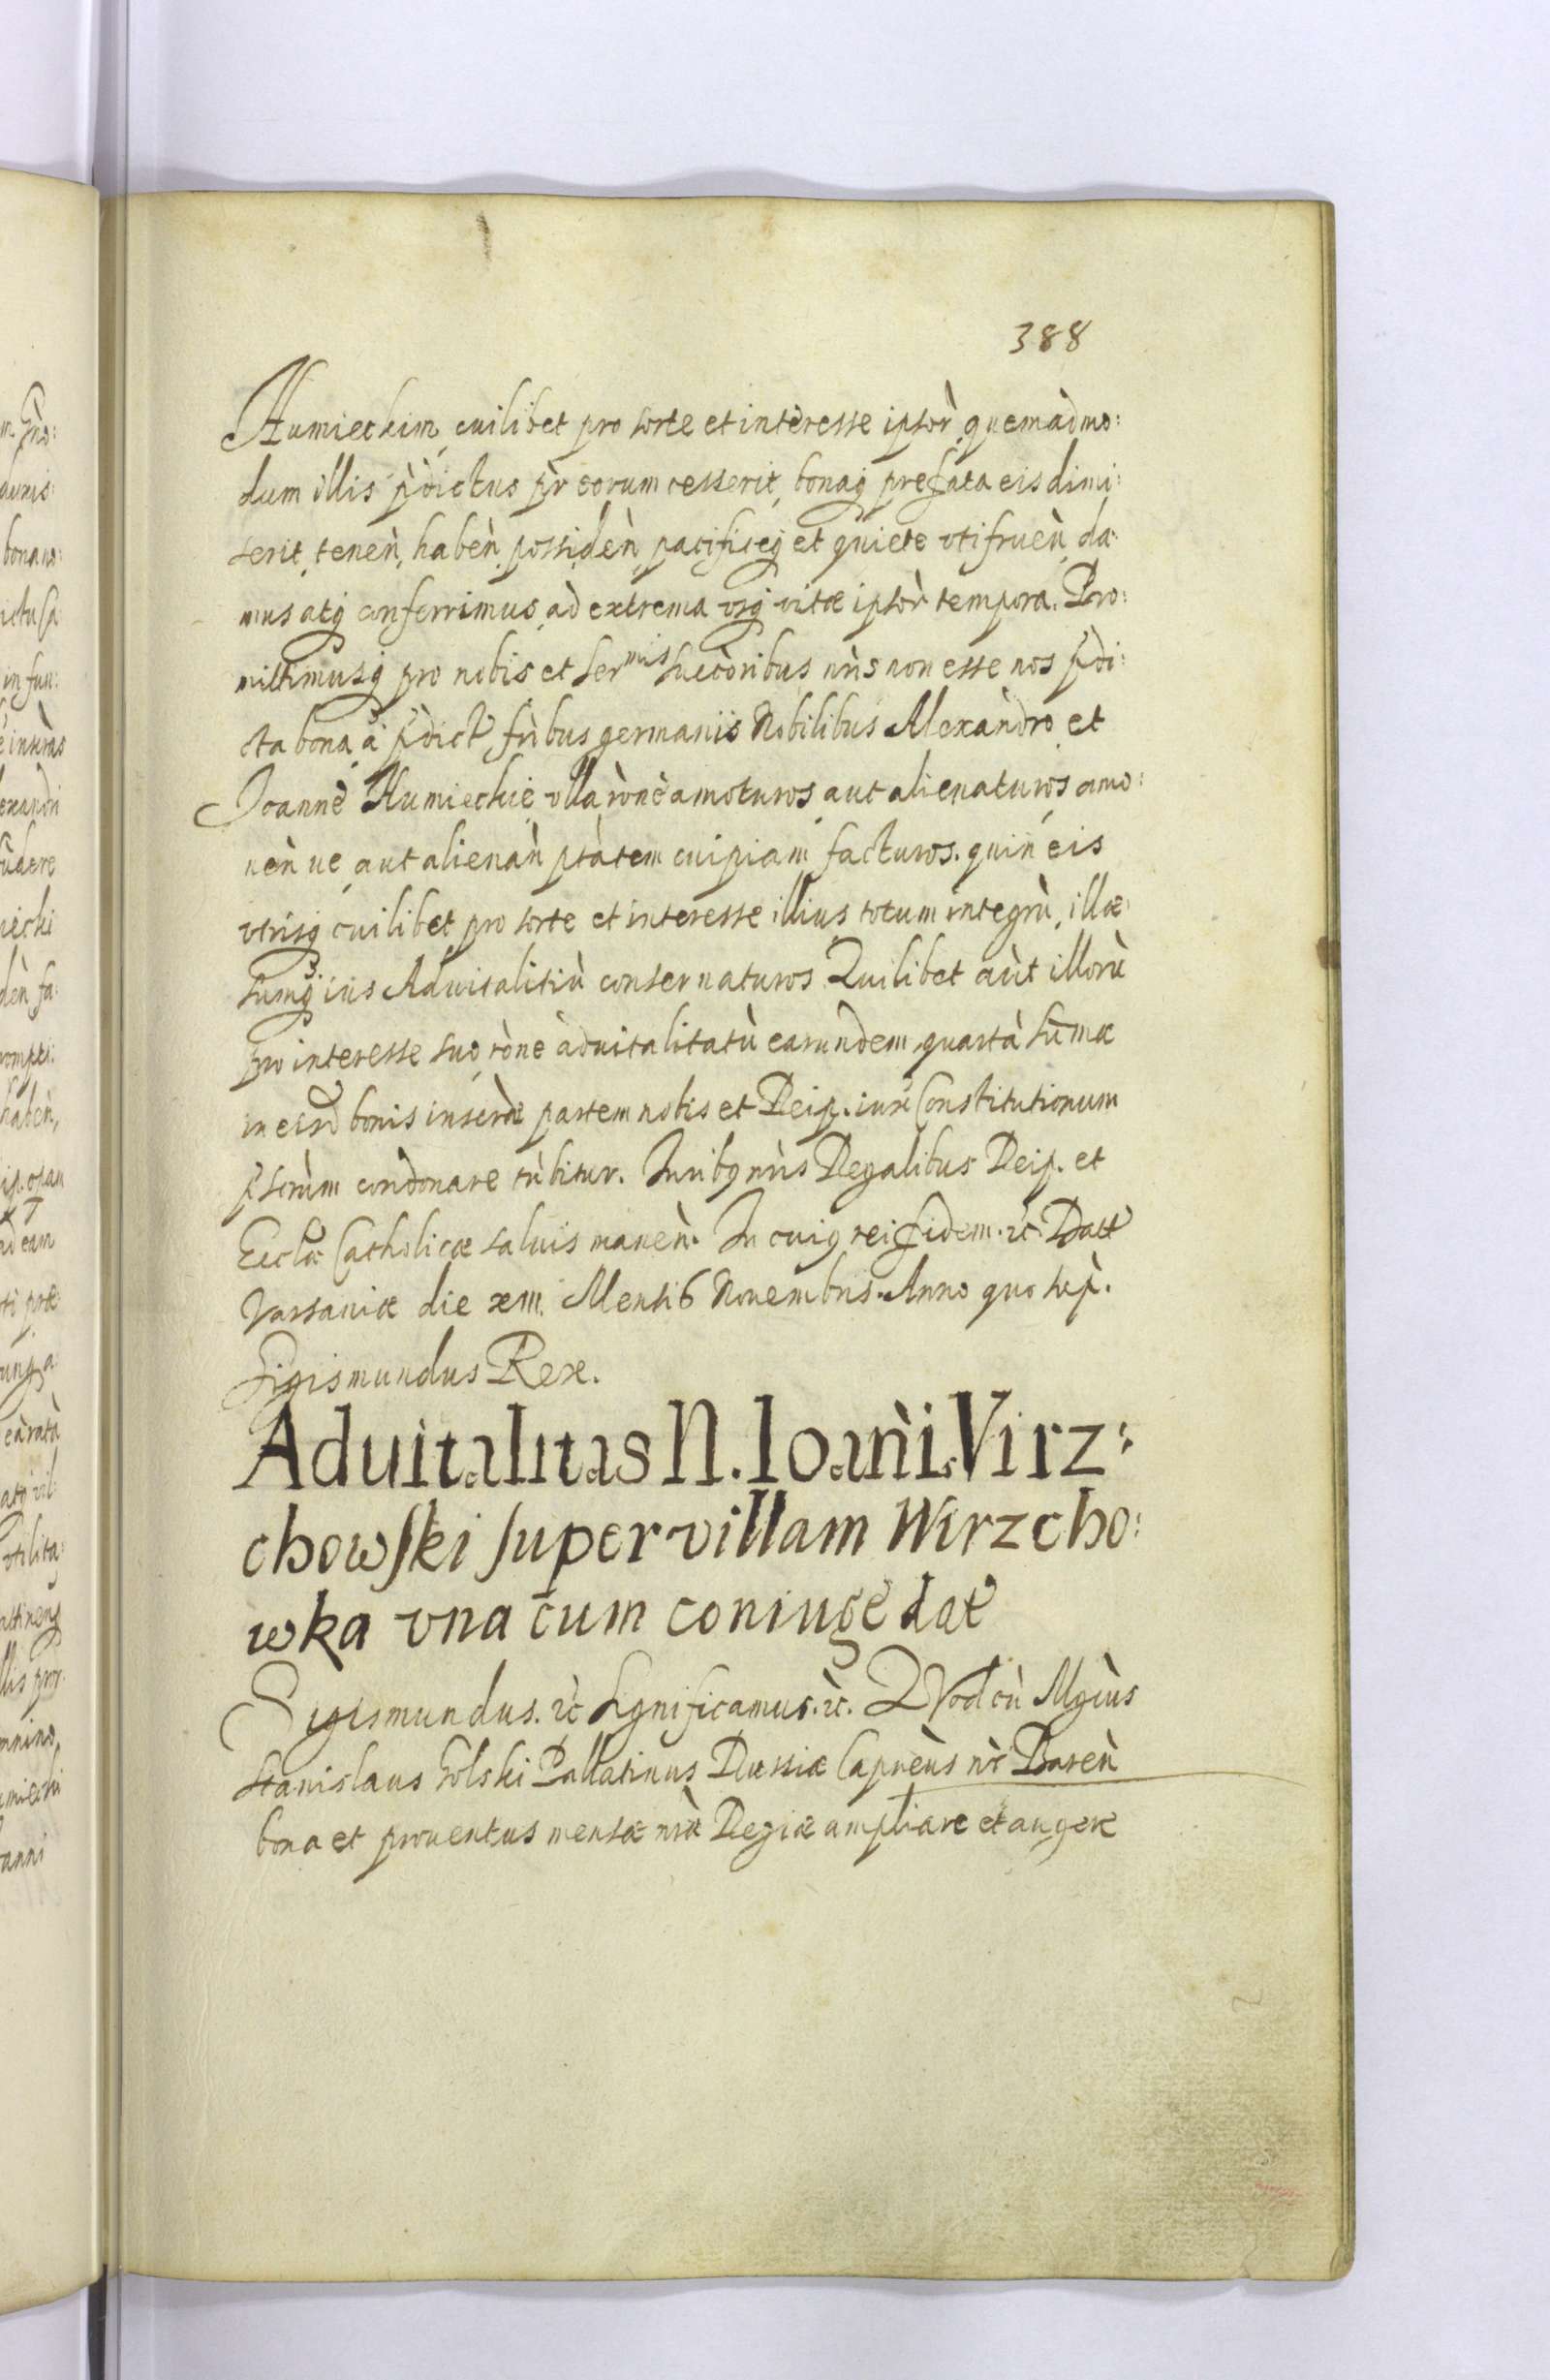 388
Humieckim, cuilibet pro sorte et interesse ipsor̀, quemàdmo:
dum illis p̀dictus p̀r eorum cesserit, bonaq̨ prefata eis dimi:
serit, tenen̄, haben̄, possiden̄, pacificeq̨ et quiete utifruen̄, da:
mus atq̨ conferrimus, ad extrema vsq̨ vitæ ipsor̀ tempora. Pro:
mittimusq̨ pro nobis et Ser^mis Succoribus nr̀is non esse nos p̀di:
cta bona, à p̀dict̄ fr̀ibus germanis Nobilibus Alexandro, et
Joanne Humieckie, vlla ròne amoturos, aut alienaturos, amo:
uen̄ ue, aut alienan̄ ptàtem cuipiam facturos. quin eis
vtrisq̨ cuilibet pro sorte et interesse illius, totum integrū, illæ:
sumq̨ ius Aduitalitiū conseruaturos. Quilibet aūt illorū
pro interesse suo, ròne aduitalitatū earundem, quartà sūmæ
in eisd̄ bonis inscr̀æ partem nobis et Reip. iuxì Constitutionum
p̀scrùm condonare tǹbitur. Iurib9 nr̀is Regalibus Reip. et
Ecclæ Catholicæ saluis manen̄. In cui9 rei fidem. ꝛc. Datt̄
Varsauiæ die xiii. Mensis Nouembris. Anno quo sup̀.
Sigismundus Rex.
Aduitalitas N. Ioañi Virz:
chowski super villam Wirzcho:
wka una cum coniuge dat̄
Sigismundus. ꝛc Significamus. ꝛc. QVod cū Mgùs
Stanislaus Golski Pallatinus Russiæ Capneùs nr̀ Baren̄
bona et prouentus mensæ nr̀æ Regiæ ampliare et augere